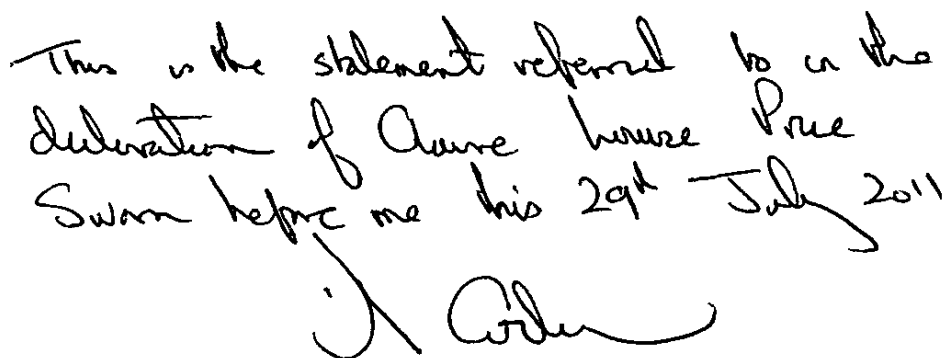 This is the statement referred to in the
declaration of Claire Louise Price
Sworn before me this 29th July 2011